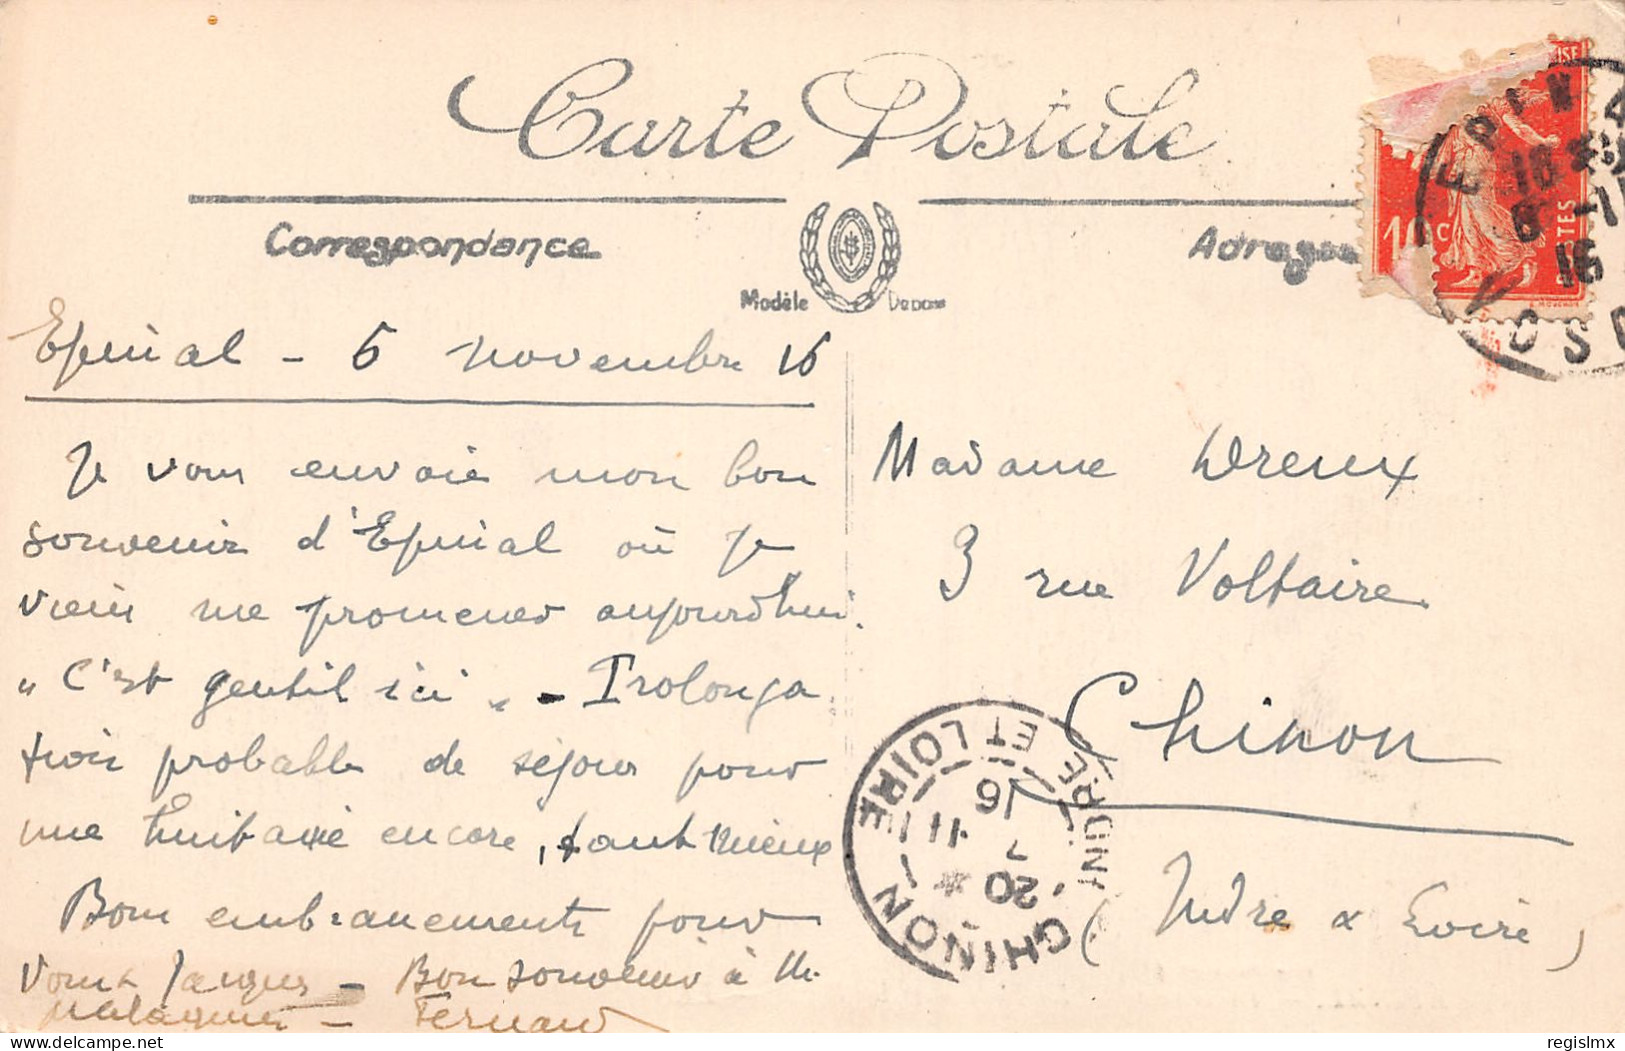 Carte Postale
Correspondance
Adresse
Modèle Déposé
10 c
TES
E. MOUCHON
EPINAL
VOSGES
16
6 -11
16
Epinal - 6 novembre 16
Je vous envoie mon bon
souvenir d'Epinal où je
viens me promener aujourd'hui.
"C'est gentil ici" - Prolonga
tion probable de séjour pour
une huitaine encore, tant mieux
Bons embrassements pour
vous & Jacques - Bon souvenir à M.
- Fernand
Madame Dreux
3 rue Voltaire
Chinon
(Indre & Loire)
CHINON
INDRE ET LOIRE
20
7 11
16
regislmx